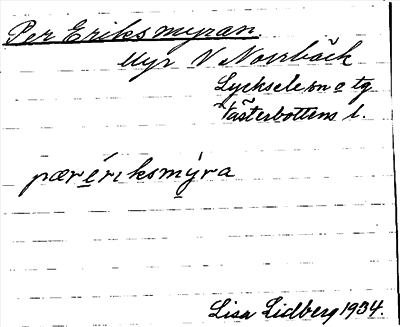 Per Eriksmyran
Myr V Norrbäck
Lycksele sn o tg
Västerbottens l.
pær ériksmýra
Lisa Lidberg 1934.